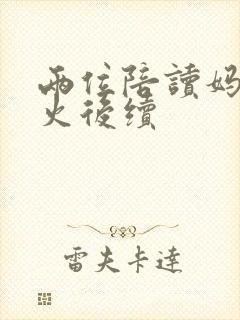 兩位陪讀妈
火後續
雷夫卡達